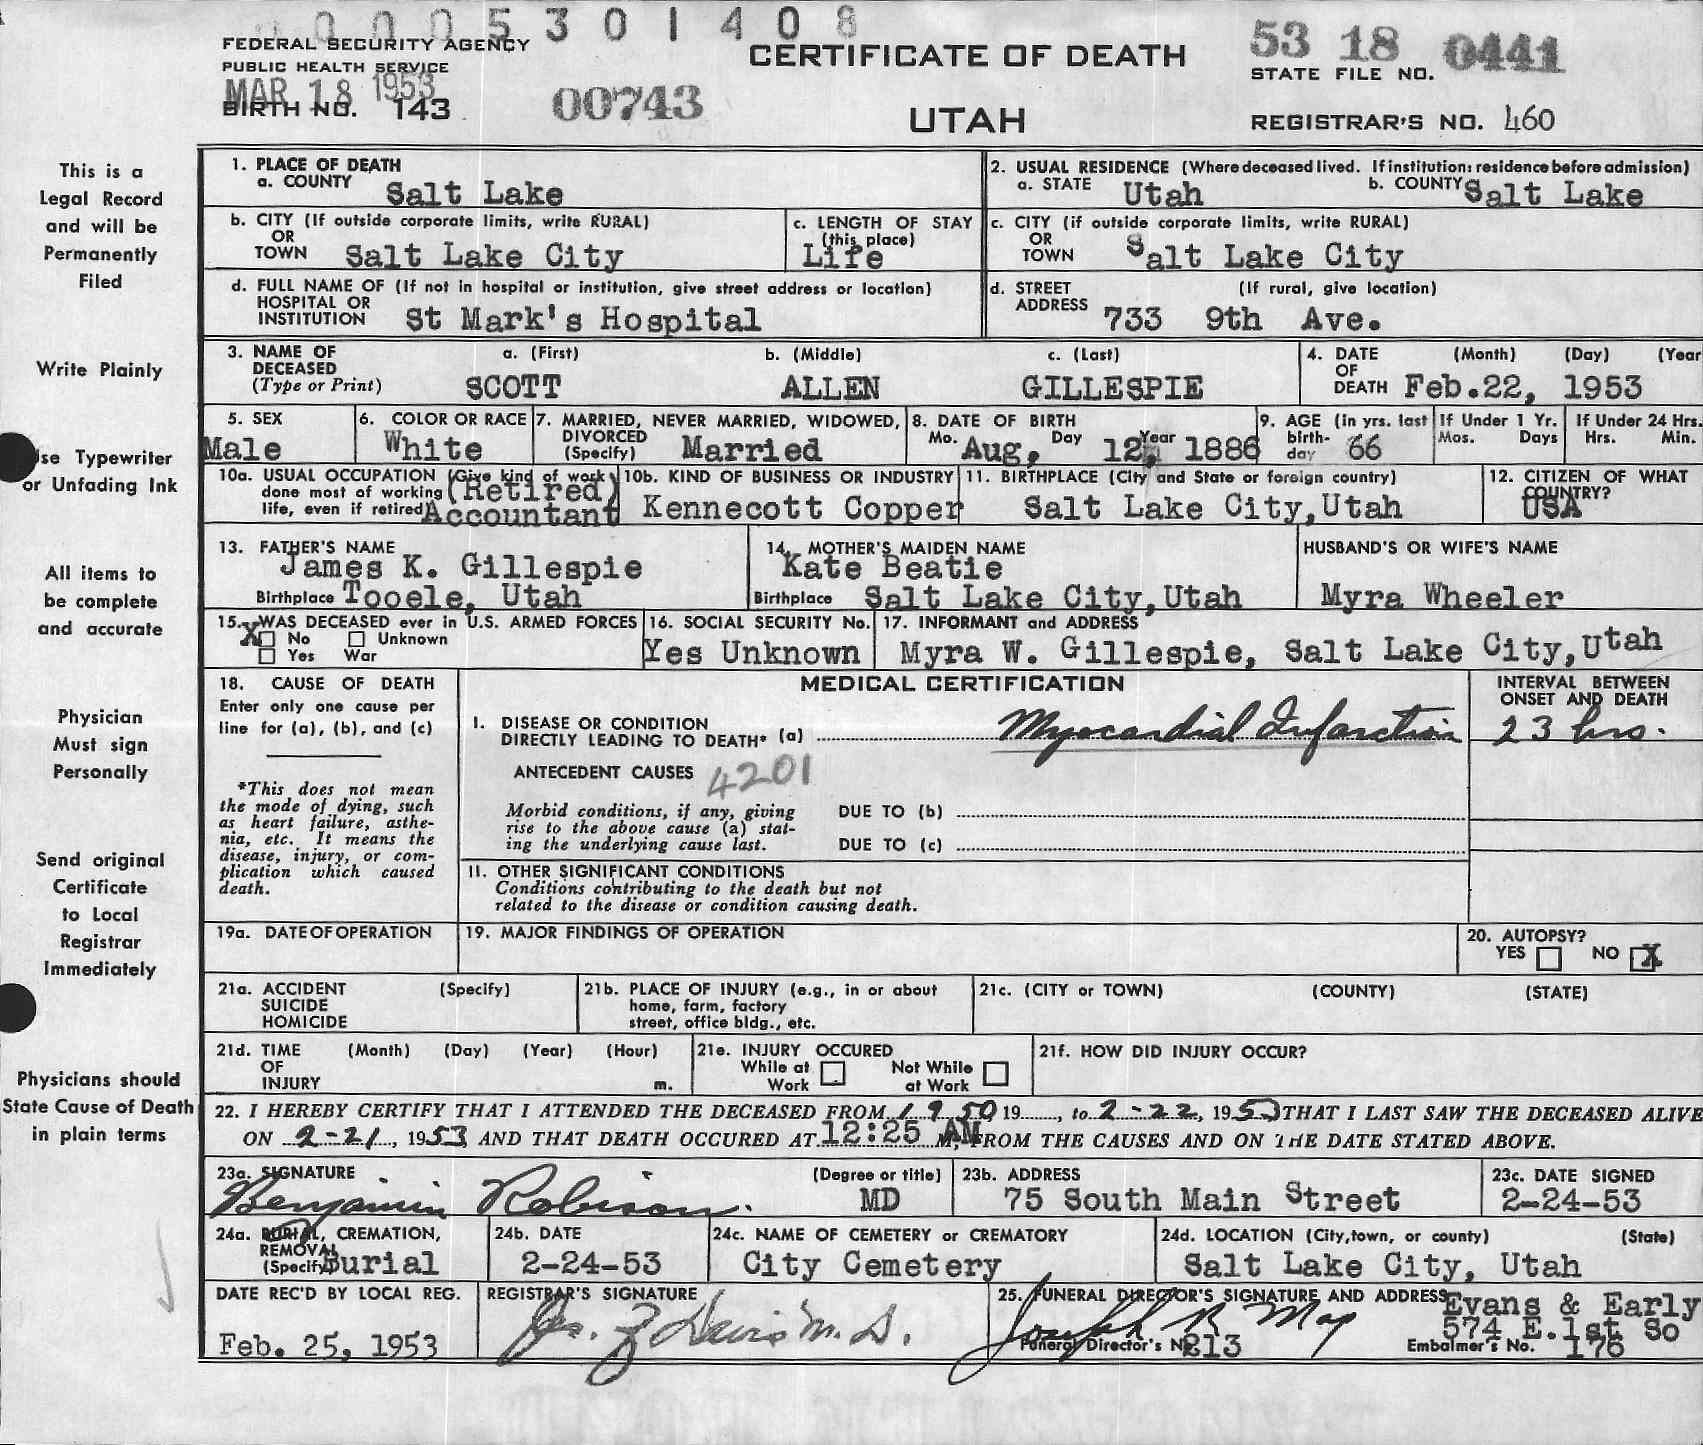 0005301408
FEDERAL SECURITY AGENCY
PUBLIC HEALTH SERVICE
MAR 18 1953
BIRTH NO. 143
00743
CERTIFICATE OF DEATH
UTAH
53 18 0441
STATE FILE NO.
REGISTRAR'S NO. 460
This is a
Legal Record
and will be
Permanently
Filed
Write Plainly
Use Typewriter
or Unfading Ink
All items to
be complete
and accurate
Physician
Must sign
Personally
Send original
Certificate
to Local
Registrar
Immediately
Physicians should
State Cause of Death
in plain terms
1. PLACE OF DEATH
a. COUNTY Salt Lake
2. USUAL RESIDENCE (Where deceased lived. If institution: residence before admission)
a. STATE Utah b. COUNTY Salt Lake
b. CITY (If outside corporate limits, write RURAL)
OR
TOWN Salt Lake City
c. LENGTH OF STAY
(this place)
Life
c. CITY (if outside corporate limits, write RURAL)
OR
TOWN Salt Lake City
d. FULL NAME OF (If not in hospital or institution, give street address or location)
HOSPITAL OR
INSTITUTION St Mark's Hospital
d. STREET (If rural, give location)
ADDRESS 733 9th Ave.
3. NAME OF a. (First) b. (Middle) c. (Last)
DECEASED
(Type or Print) SCOTT ALLEN GILLESPIE
4. DATE (Month) (Day) (Year
OF
DEATH Feb.22, 1953
5. SEX
Male
6. COLOR OR RACE
White
7. MARRIED, NEVER MARRIED, WIDOWED,
DIVORCED
(Specify) Married
8. DATE OF BIRTH
Mo. Aug, Day 12, Year 1886
9. AGE (in yrs. last
birth-
day 66
If Under 1 Yr.
Mos. Days
If Under 24 Hrs.
Hrs. Min.
10a. USUAL OCCUPATION (Give kind of work
done most of working (Retired)
life, even if retired) Accountant
10b. KIND OF BUSINESS OR INDUSTRY
Kennecott Copper
11. BIRTHPLACE (City and State or foreign country)
Salt Lake City,Utah
12. CITIZEN OF WHAT
COUNTRY?
USA
13. FATHER'S NAME
James K. Gillespie
Birthplace Tooele, Utah
14. MOTHER'S MAIDEN NAME
Kate Beatie
Birthplace Salt Lake City,Utah
HUSBAND'S OR WIFE'S NAME
Myra Wheeler
15. WAS DECEASED ever in U.S. ARMED FORCES
X No Unknown
Yes War
16. SOCIAL SECURITY No.
Yes Unknown
17. INFORMANT and ADDRESS
Myra W. Gillespie, Salt Lake City,Utah
18. CAUSE OF DEATH
Enter only one cause per
line for (a), (b), and (c)
*This does not mean
the mode of dying, such
as heart failure, asthe-
nia, etc. It means the
disease, injury, or com-
plication which caused
death.
MEDICAL CERTIFICATION
INTERVAL BETWEEN
ONSET AND DEATH
I. DISEASE OR CONDITION
DIRECTLY LEADING TO DEATH* (a) Myocardial Infarction 23 hrs.
ANTECEDENT CAUSES 4201
Morbid conditions, if any, giving
rise to the above cause (a) stat-
ing the underlying cause last.
DUE TO (b)
DUE TO (c)
11. OTHER SIGNIFICANT CONDITIONS
Conditions contributing to the death but not
related to the disease or condition causing death.
19a. DATE OF OPERATION
19. MAJOR FINDINGS OF OPERATION
20. AUTOPSY?
YES NO X
21a. ACCIDENT (Specify)
SUICIDE
HOMICIDE
21b. PLACE OF INJURY (e.g., in or about
home, farm, factory
street, office bldg., etc.
21c. (CITY or TOWN) (COUNTY) (STATE)
21d. TIME (Month) (Day) (Year) (Hour)
OF
INJURY m.
21e. INJURY OCCURED
While at Not While
Work at Work
21f. HOW DID INJURY OCCUR?
22. I HEREBY CERTIFY THAT I ATTENDED THE DECEASED FROM 1950 19, to 2-22, 1953 THAT I LAST SAW THE DECEASED ALIVE
ON 2-21, 1953 AND THAT DEATH OCCURED AT 12:25 AM M, FROM THE CAUSES AND ON THE DATE STATED ABOVE.
23a. SIGNATURE (Degree or title)
Benjamin Robison. MD
23b. ADDRESS
75 South Main Street
23c. DATE SIGNED
2-24-53
24a. BURIAL, CREMATION,
REMOVAL
(Specify) Burial
24b. DATE
2-24-53
24c. NAME OF CEMETERY or CREMATORY
City Cemetery
24d. LOCATION (City,town, or county) (State)
Salt Lake City, Utah
DATE REC'D BY LOCAL REG.
Feb. 25, 1953
REGISTRAR'S SIGNATURE
Davis M.D.
25. FUNERAL DIRECTOR'S SIGNATURE AND ADDRESS
Evans & Early
574 E.1st So
Joseph R May
Funeral Director's No. 213
Embalmer's No. 176